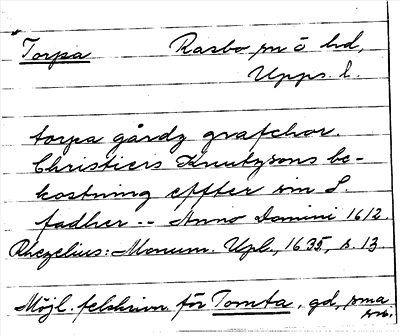 Torpa Rasbo sn ö hd,
Upps. l.
torpa gårdz grafchor.
Christiers Knutzsons be-
kostning effter sin S.
fadher -- Anno Domini 1612.
Rhezelius: Monum. Upl., 1635, s. 13.
Möjl. felskrivn. för Tomta, gd, sma
sn.